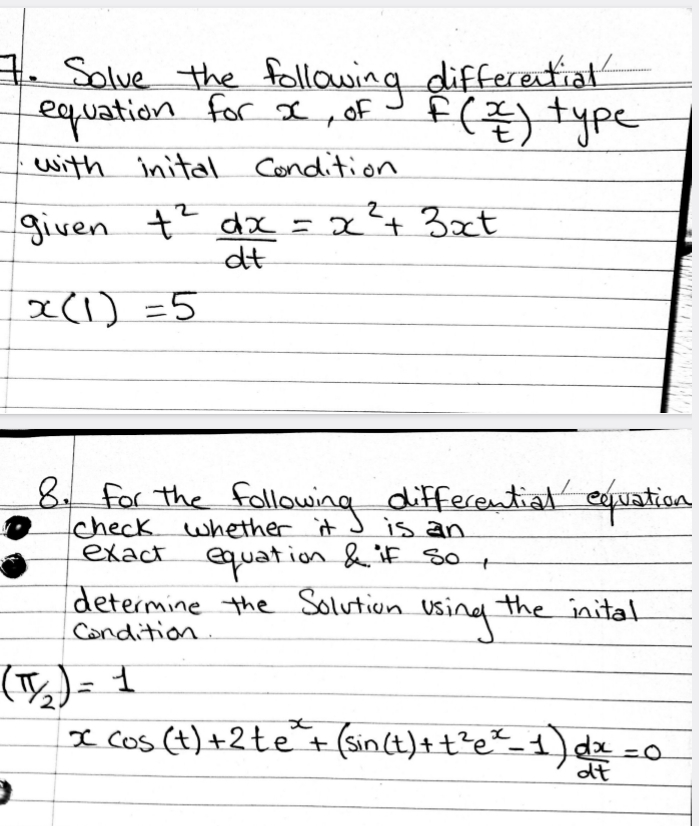 7. Solve the following differential
equation for x, of f(x/t) type
with inital Condition
given t² dx/dt = x² + 3xt
x(1) = 5
8. For the following differential equation
check whether it is an
exact equation & if so,
determine the Solution using the inital
Condition.
(π/2) = 1
x cos(t) + 2te^x + (sin(t) + t²e^x - 1) dx/dt = 0